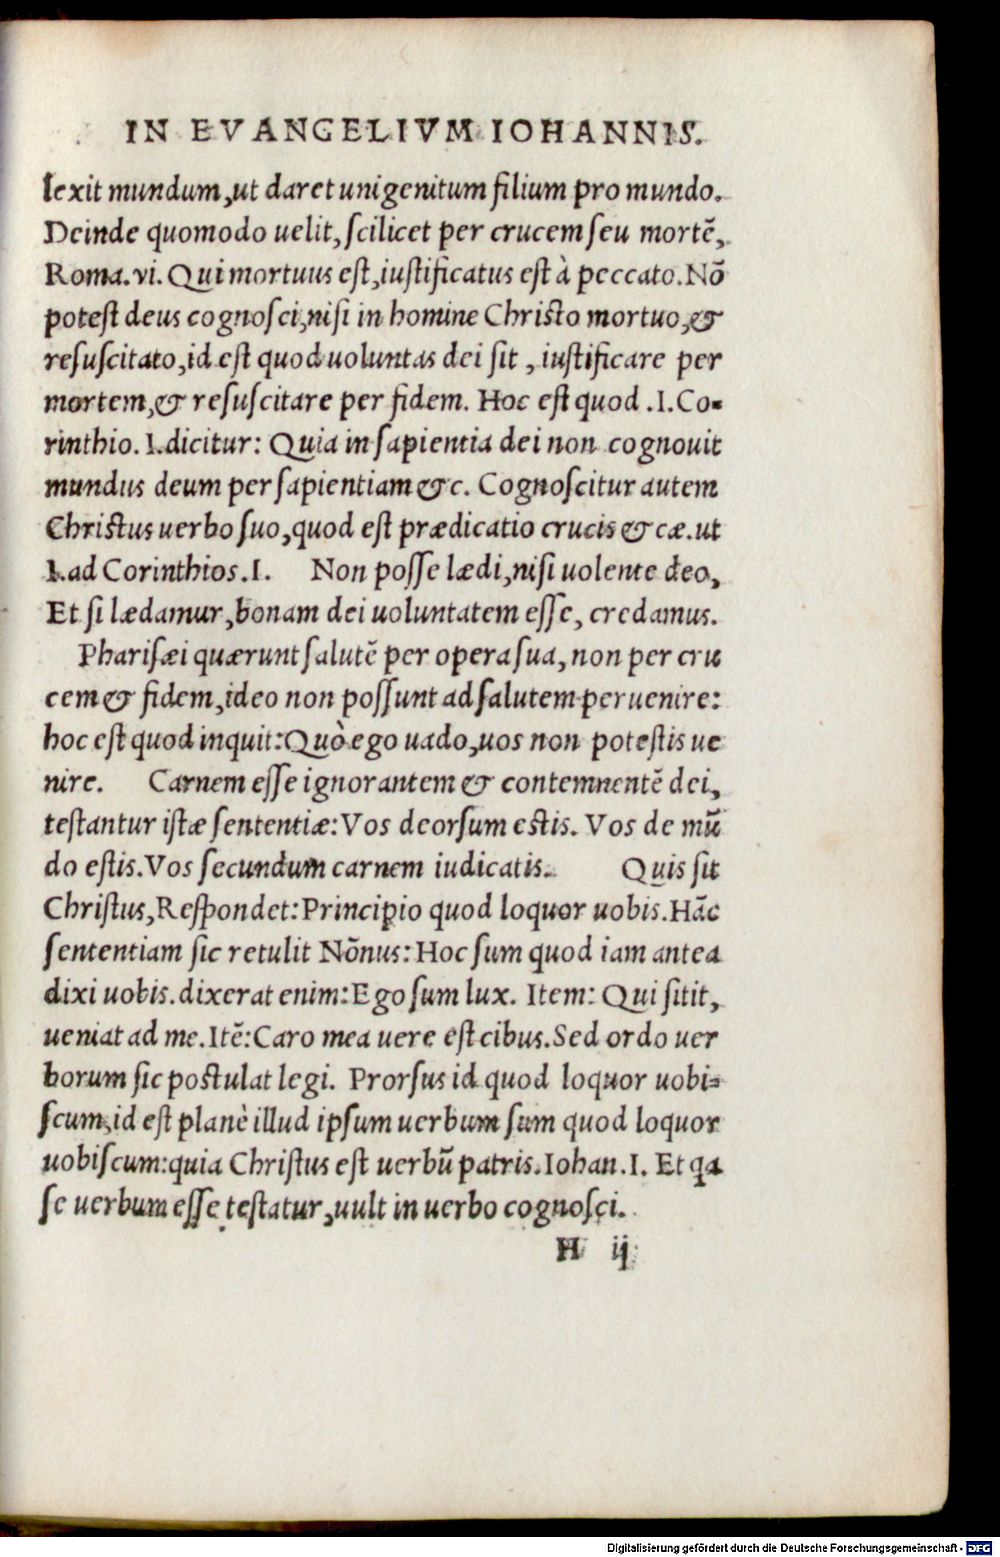 IN EVANGELIVM IOHANNIS.
lexit mundum, ut daret unigenitum filium pro mundo.
Deinde quomodo uelit, scilicet per crucem seu mortē,
Roma. vi. Qui mortuus est, iustificatus est à peccato. Nō
potest deus cognosci, nisi in homine Christo mortuo, &
resuscitato, id est quod uoluntas dei sit, iustificare per
mortem, & resuscitare per fidem. Hoc est quod .I. Co-
rinthio. I. dicitur: Quia in sapientia dei non cognouit
mundus deum per sapientiam &c. Cognoscitur autem
Christus uerbo suo, quod est prædicatio crucis & cæ. ut
I. ad Corinthios. I. Non posse lædi, nisi uolente deo,
Et si lædamur, bonam dei uoluntatem esse, credamus.
Pharisæi quærunt salutē per opera sua, non per cru
cem & fidem, ideo non possunt ad salutem peruenire:
hoc est quod inquit: Quò ego uado, uos non potestis ue
nire. Carnem esse ignorantem & contemnentē dei,
testantur istæ sententiæ: Vos deorsum estis. Vos de mū
do estis. Vos secundum carnem iudicatis. Quis sit
Christus, Respondet: Principio quod loquor uobis. Hāc
sententiam sic retulit Nōnus: Hoc sum quod iam antea
dixi uobis. dixerat enim: Ego sum lux. Item: Qui sitit,
ueniat ad me. Itē: Caro mea uere est cibus. Sed ordo uer
borum sic postulat legi. Prorsus id quod loquor uobi-
scum, id est planè illud ipsum uerbum sum quod loquor
uobiscum: quia Christus est uerbū patris. Iohan. I. Et qa
se uerbum esse testatur, uult in uerbo cognosci.
H ij
Digitalisierung gefördert durch die Deutsche Forschungsgemeinschaft - DFG